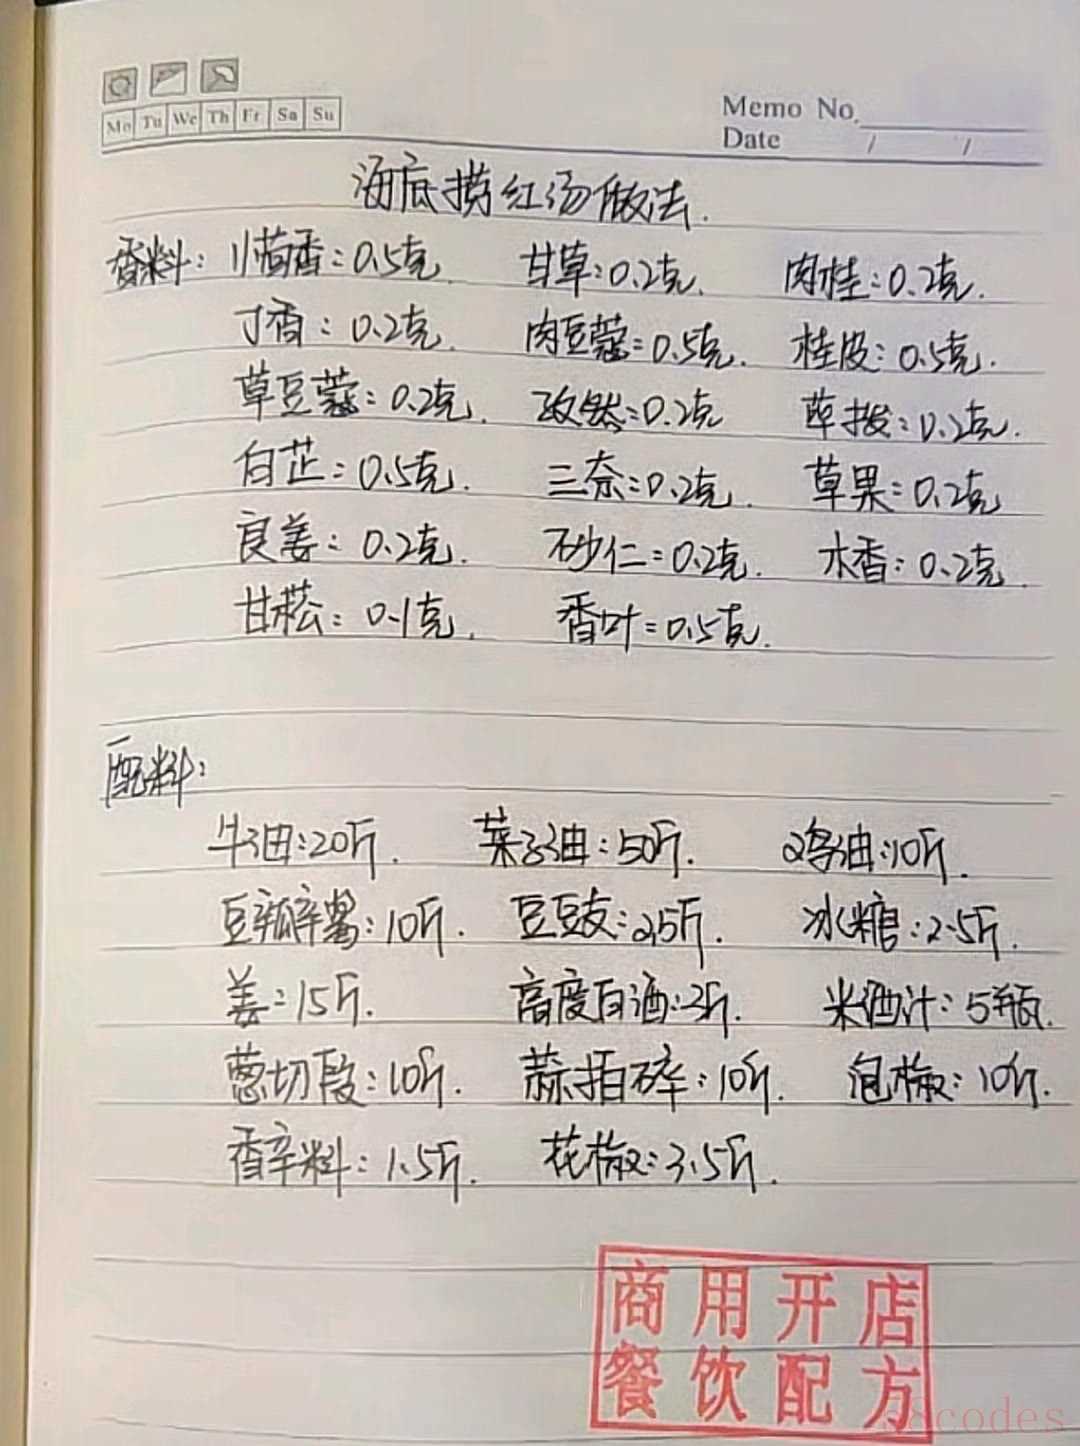 Mo Tu We Th Fr Sa Su
Memo No.
Date / /
海底捞红汤做法.
香料: 小茴香:0.5克 甘草:0.2克. 肉桂:0.2克.
丁香:0.2克. 肉豆蔻:0.5克. 桂皮:0.5克.
草豆蔻:0.2克. 孜然:0.2克 荜拨:0.2克.
白芷:0.5克. 三奈:0.2克. 草果:0.2克
良姜:0.2克. 砂仁:0.2克. 木香:0.2克
甘菘:0.1克. 香叶:0.5克.
配料:
牛油:20斤. 菜子油:50斤. 鸡油:10斤.
豆瓣酱:10斤. 豆豉:2.5斤. 冰糖:2.5斤.
姜:15斤. 高度白酒:2斤. 米酒汁:5瓶.
葱切段:10斤. 蒜拍碎:10斤. 泡椒:10斤.
香辛料:1.5斤. 花椒:3.5斤.
商用开店
餐饮配方
58codes